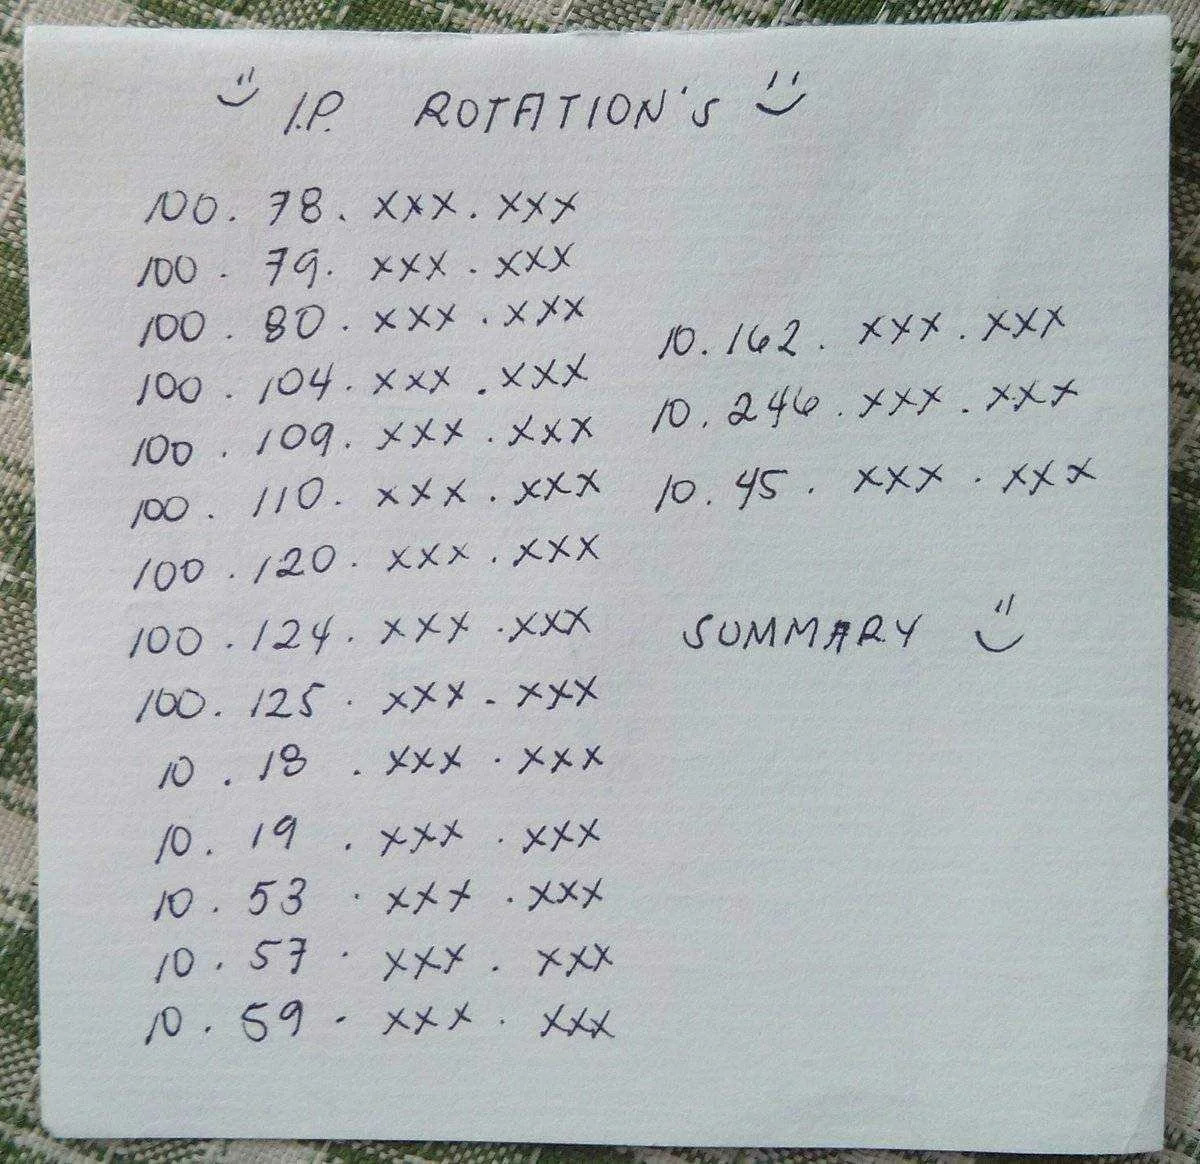 I.P. ROTATION'S
100.78.xxx.xxx
100.79.xxx.xxx
100.80.xxx.xxx
100.104.xxx.xxx
100.109.xxx.xxx
100.110.xxx.xxx
100.120.xxx.xxx
100.124.xxx.xxx
100.125.xxx.xxx
10.18.xxx.xxx
10.19.xxx.xxx
10.53.xxx.xxx
10.57.xxx.xxx
10.59.xxx.xxx
10.162.xxx.xxx
10.246.xxx.xxx
10.45.xxx.xxx
SUMMARY